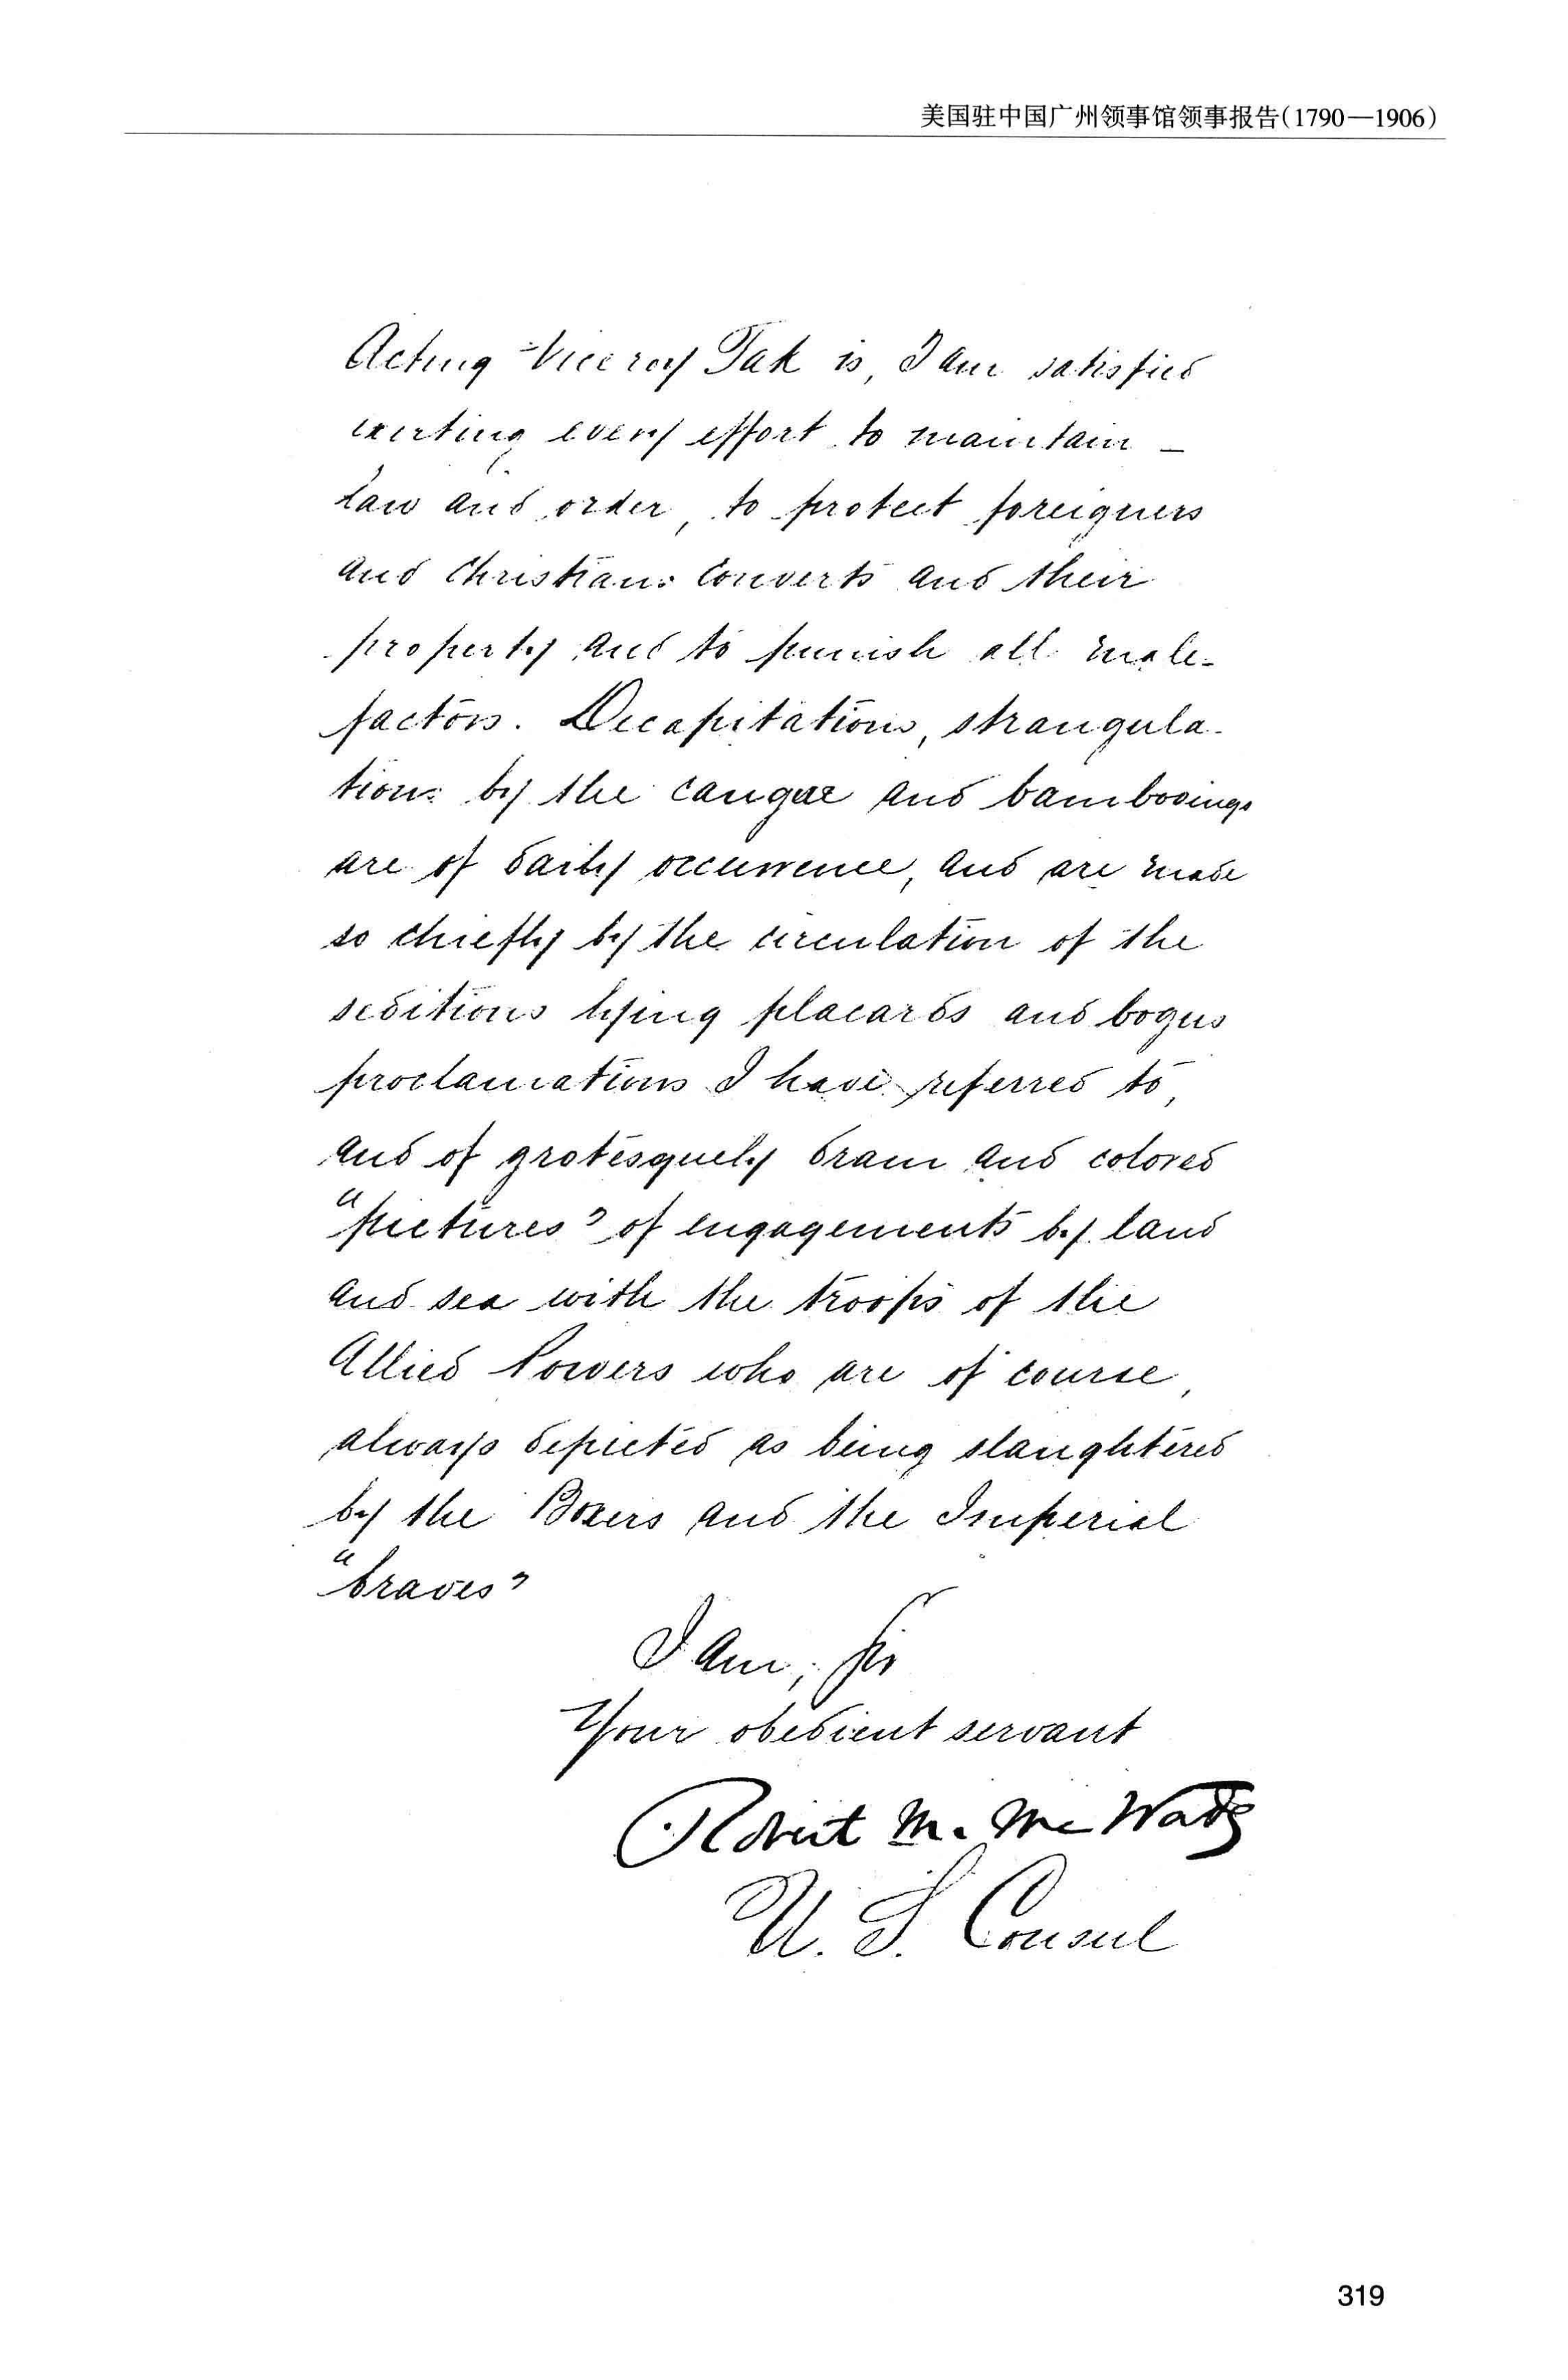 美国驻中国广州领事馆领事报告(1790—1906)
Acting Viceroy Tak is, I am satisfied
exerting every effort to maintain –
law and order, to protect foreigners
and Christian converts and their
property and to punish all male-
factors. Decapitations, strangula-
tions by the cangue and bambooings
are of daily occurrence, and are made
so chiefly by the circulation of the
seditious lying placards and bogus
proclamations I have referred to,
and of grotesquely drawn and colored
"pictures" of engagements by land
and sea with the troops of the
Allied Powers who are of course,
always depicted as being slaughtered
by the Boxers and the Imperial
"braves"
I am, Sir
Your obedient servant
Robert M. McWade
U.S. Consul
319